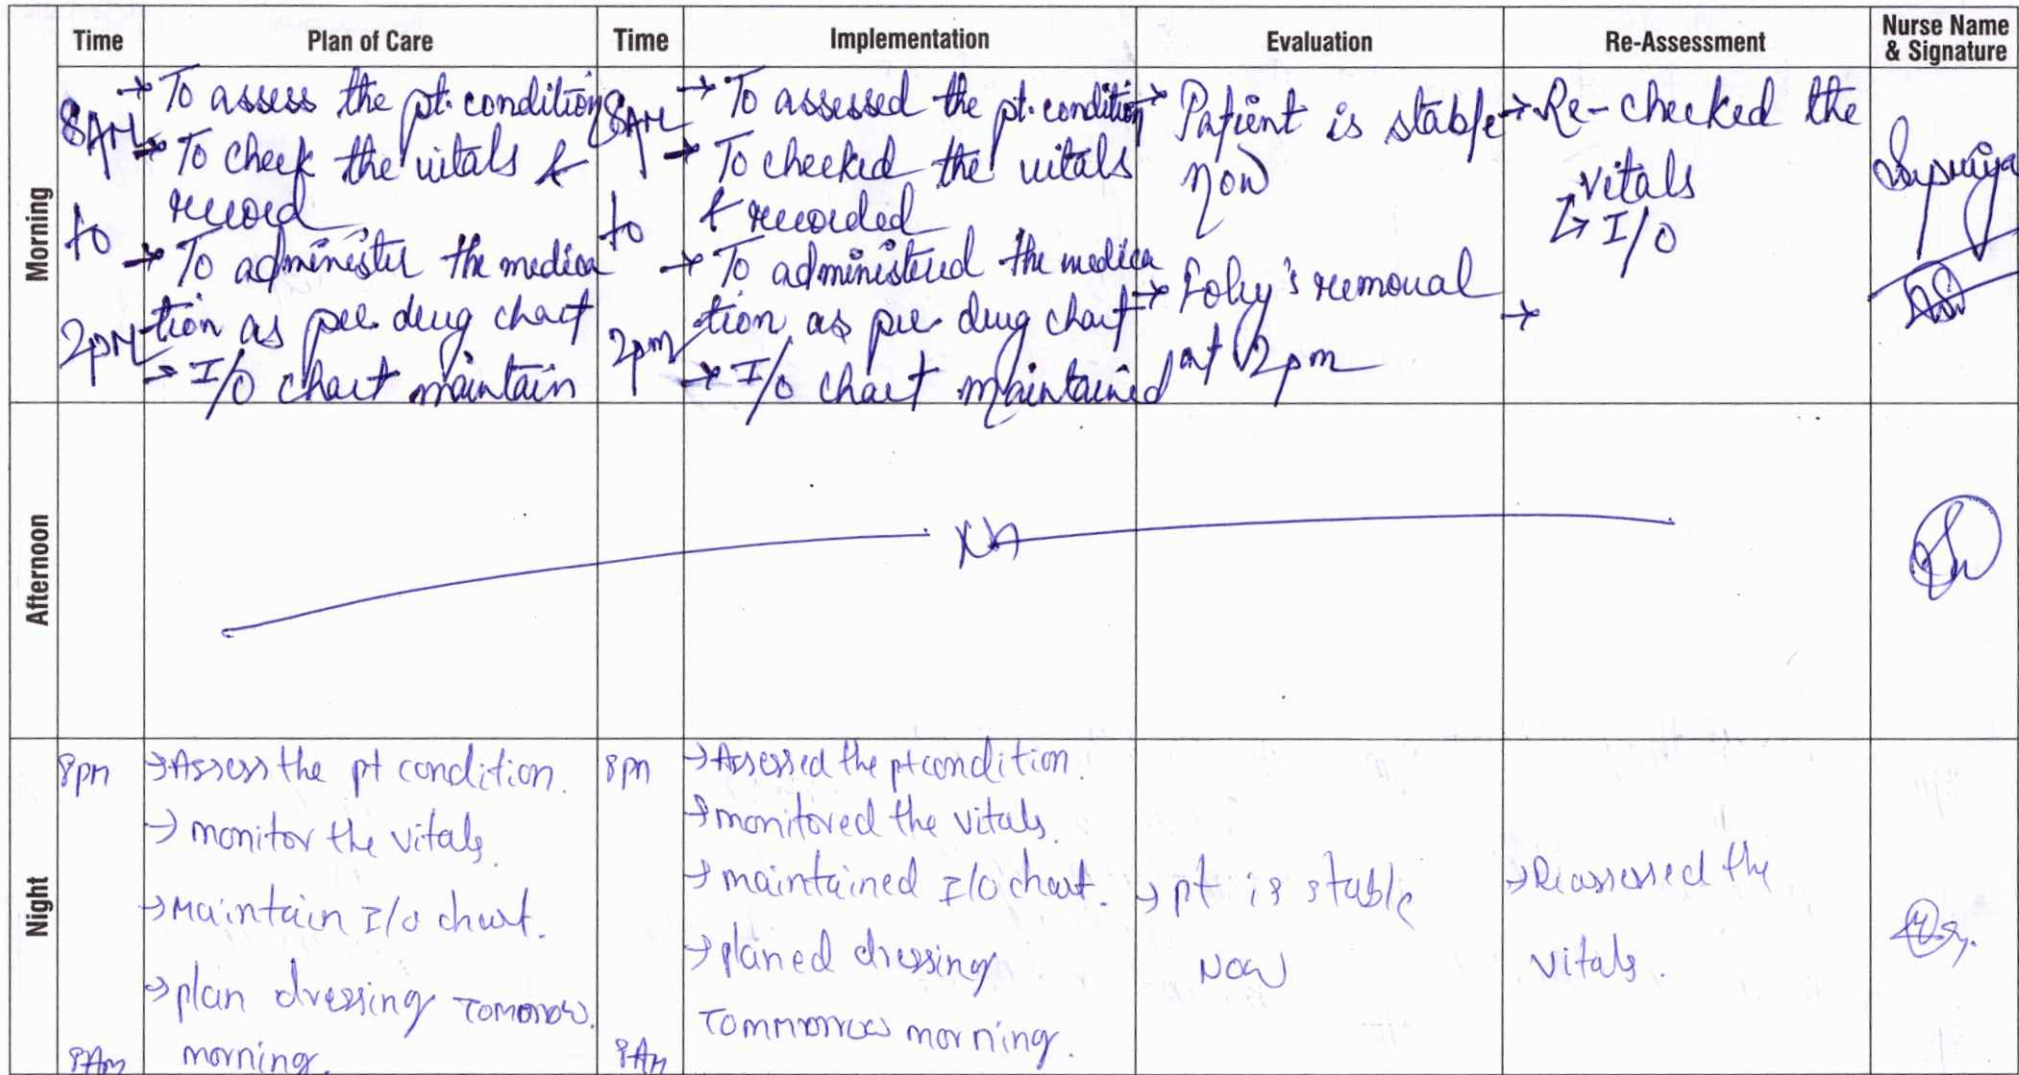 Time Plan of Care Time Implementation Evaluation Re-Assessment Nurse Name
& Signature
Morning
8AM
to
2PM
→ To assess the pt. condition
→ To check the vitals &
record
→ To administer the medica
tion as per drug chart
→ I/O chart maintain
8AM
to
2pm
→ To assessed the pt. condition
→ To checked the vitals
& recorded
→ To administered the medica
tion as per drug chart
→ I/O chart maintained
→ Patient is stable
now
→ Foley's removal
at 2pm
→ Re-checked the
vitals
→ I/O
→
Afternoon
Night
8pm
8Am
→ Assess the pt condition.
→ monitor the vitals.
→ Maintain I/O chart.
→ plan dressing Tomorrow.
morning.
8pm
8Am
→ Assessed the pt condition.
→ monitored the vitals.
→ maintained I/O chart.
→ planed dressing
Tommorrow morning.
→ pt is stable
Now
→ Reassessed the
vitals.